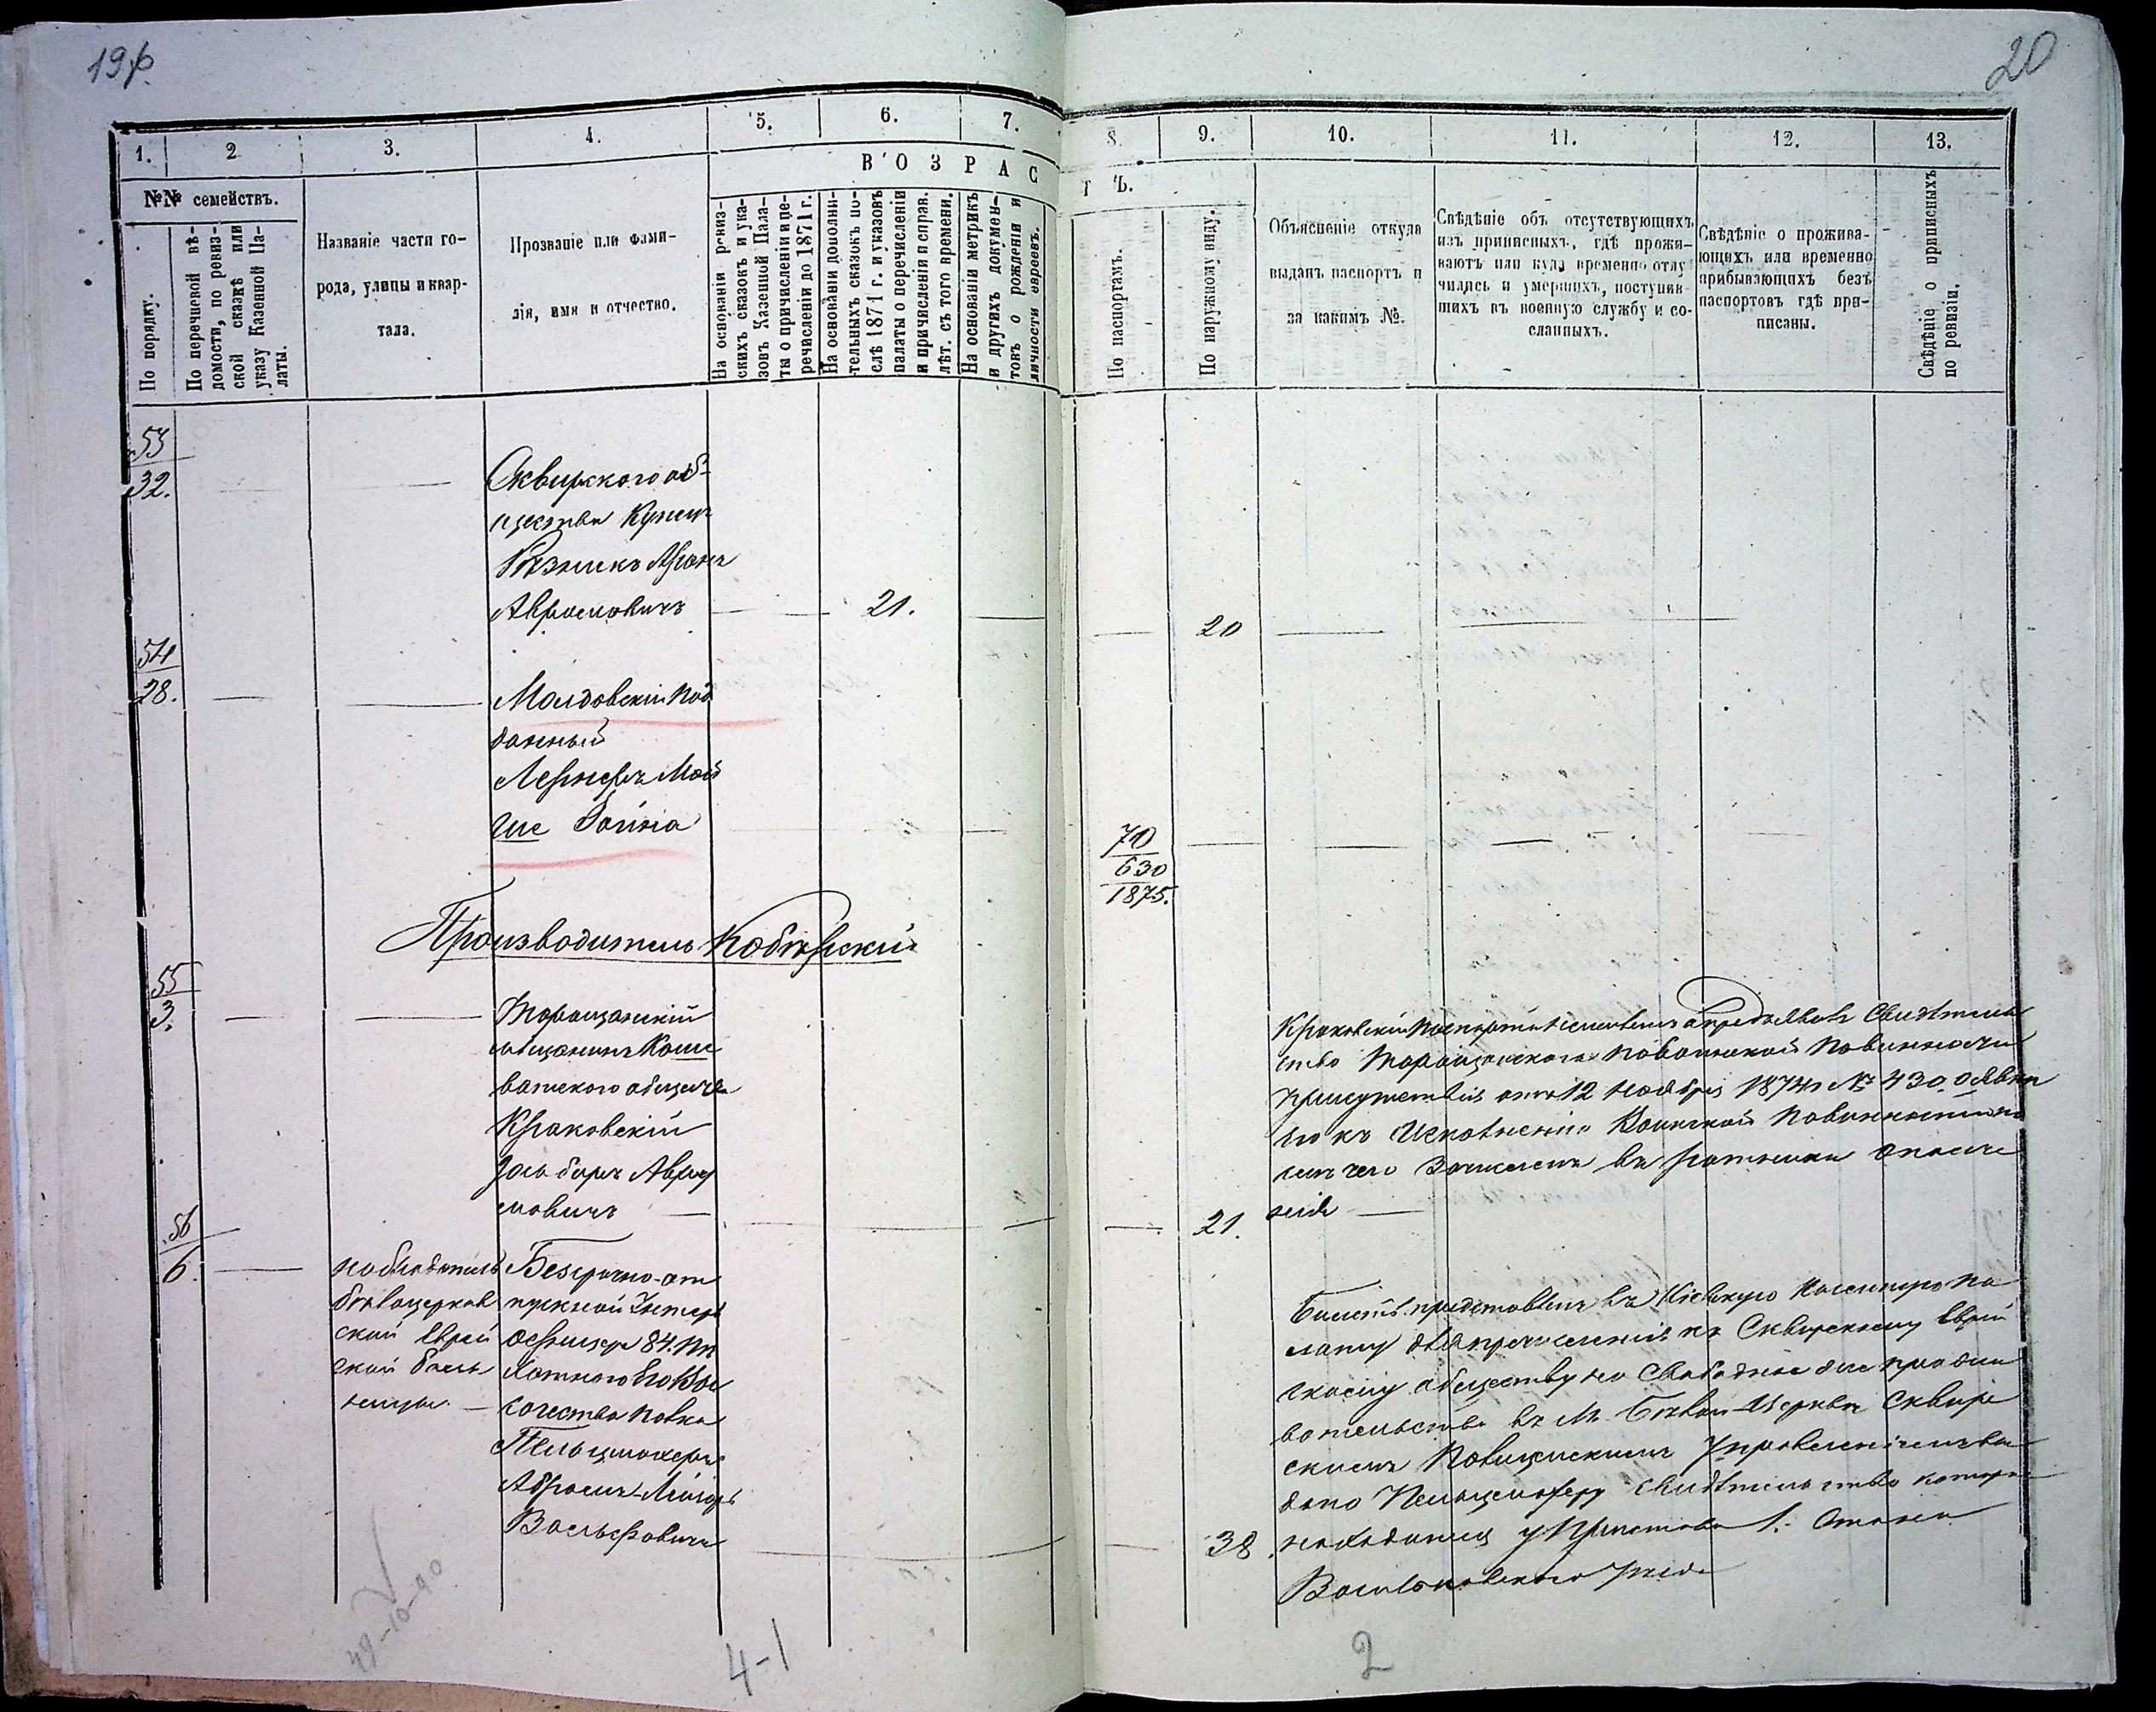 19
20
1. 2 3. 4. 5. 6. 7.
8. 9. 10. 11. 12. 13.
В О З Р А С
Т Ъ.
№№ семействъ.
По порядку.
По перечневой вѣ-
домости, по ревиз-
ской сказкѣ или
указу Казенной Па-
латы.
Названіе части го-
рода, улицы и квар-
тала.
Прозваніе или фами-
лія, имя и отчество.
На основаніи ревиз-
скихъ сказокъ и ука-
зовъ Казенной Пала-
ты о причисленіи и пе-
речисленіи до 1871 г.
На основаніи дополни-
тельныхъ сказокъ по-
слѣ 1871 г. и указовъ
палаты о перечисленіи
и причисленіи и справ.
лѣт. съ того времени.
На основаніи метрикъ
и другихъ докумен-
товъ о рожденіи и
личности евреевъ.
По паспортамъ.
По наружному виду.
Объясненіе откуда
выданъ паспортъ и
за какимъ №.
Свѣдѣніе объ отсутствующихъ
изъ приписныхъ, гдѣ прожи-
ваютъ или куда временно отлу
чились и умершихъ, поступив-
шихъ въ военную службу и со-
сланныхъ.
Свѣдѣніе о прожива-
ющихъ или временно
прибывающихъ безъ
паспортовъ гдѣ при-
писаны.
Свѣдѣніе о приписныхъ
по ревизіи.
53
32.
Сквирского об-
щества Купецъ
Рѣзникъ Аронъ
Аврумовичъ
21.
20
54
28.
Молдовскій под
данный
Лернеръ Мой
ше Дойна
70
630
1875.
Производитель Кобѣрскій
55
3.
Таращанскій
мѣщанинъ Коше
ватского общества
Краковскій
Авру
мовичъ
21.
Краковскій паспорта неимѣетъ а предъявилъ Свидѣтель
ство Таращанского по воинской повинности
присутствія отъ 12 ноября 1874 № 430. о явкѣ
его къ исполненію воинской повинности по
сему чего зачисленъ въ ратники ополче
нія
56
6.
наблюдатель
бѣлоцерков
ской Еврей
ской боль
ницы.
Безсрочно-от
пускной Унтеръ
офицеръ 84. пѣ
хотного Его Вы
сочества полка
Пельцмахеръ
Абрамъ-Лейзоръ
Вольфовичъ
38.
Билетъ представленъ въ Кіевскую Казенную Па
лату для причисленія къ Сквирскому Еврей
скому обществу на свободное проживательство
въ М. Бѣлой-Церкви Сквир
скимъ Полицейскимъ Управленіемъ вы
дано Пельцмахеру свидѣтельство которое
находится у Пристава 1. Стана
Васильковского Уѣзда
49-10-90
4-1
2